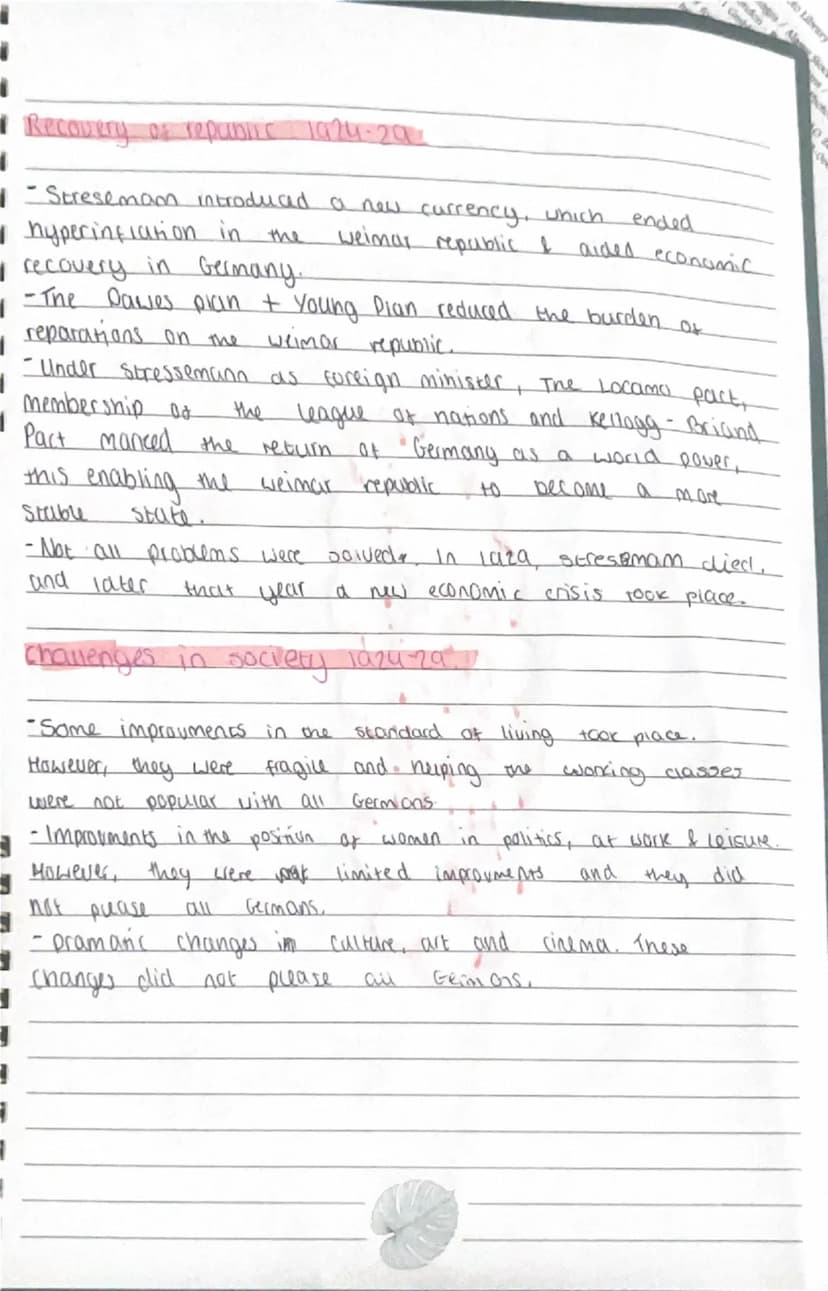 Recovery of republic 1924-29.
- Stresemann introduced a new currency, which ended
hyperinflation in the weimar republic & aided economic
recovery in Germany.
- The Dawes plan + Young Plan reduced the burden of
reparations on the weimar republic.
- Under Stressemann as foreign minister, The Locarno pact,
membership of the league of nations and Kellogg - Briand
Pact marked the return of Germany as a world power,
this enabling the weimar republic to become a more
stable state.
- Not all problems were solved. In 1929, stresemann died,
and later that year a new economic crisis took place.
Challenges in society 1924-29.
- Some improvments in the standard of living took place.
However, they were fragile and helping the working classes
were not popular with all Germans
- Improvments in the position of women in politics, at work & leisure.
However, they were limited improvments and they did
not please all Germans.
- Dramatic changes in culture, art and cinema. These
changes did not please all Germans.